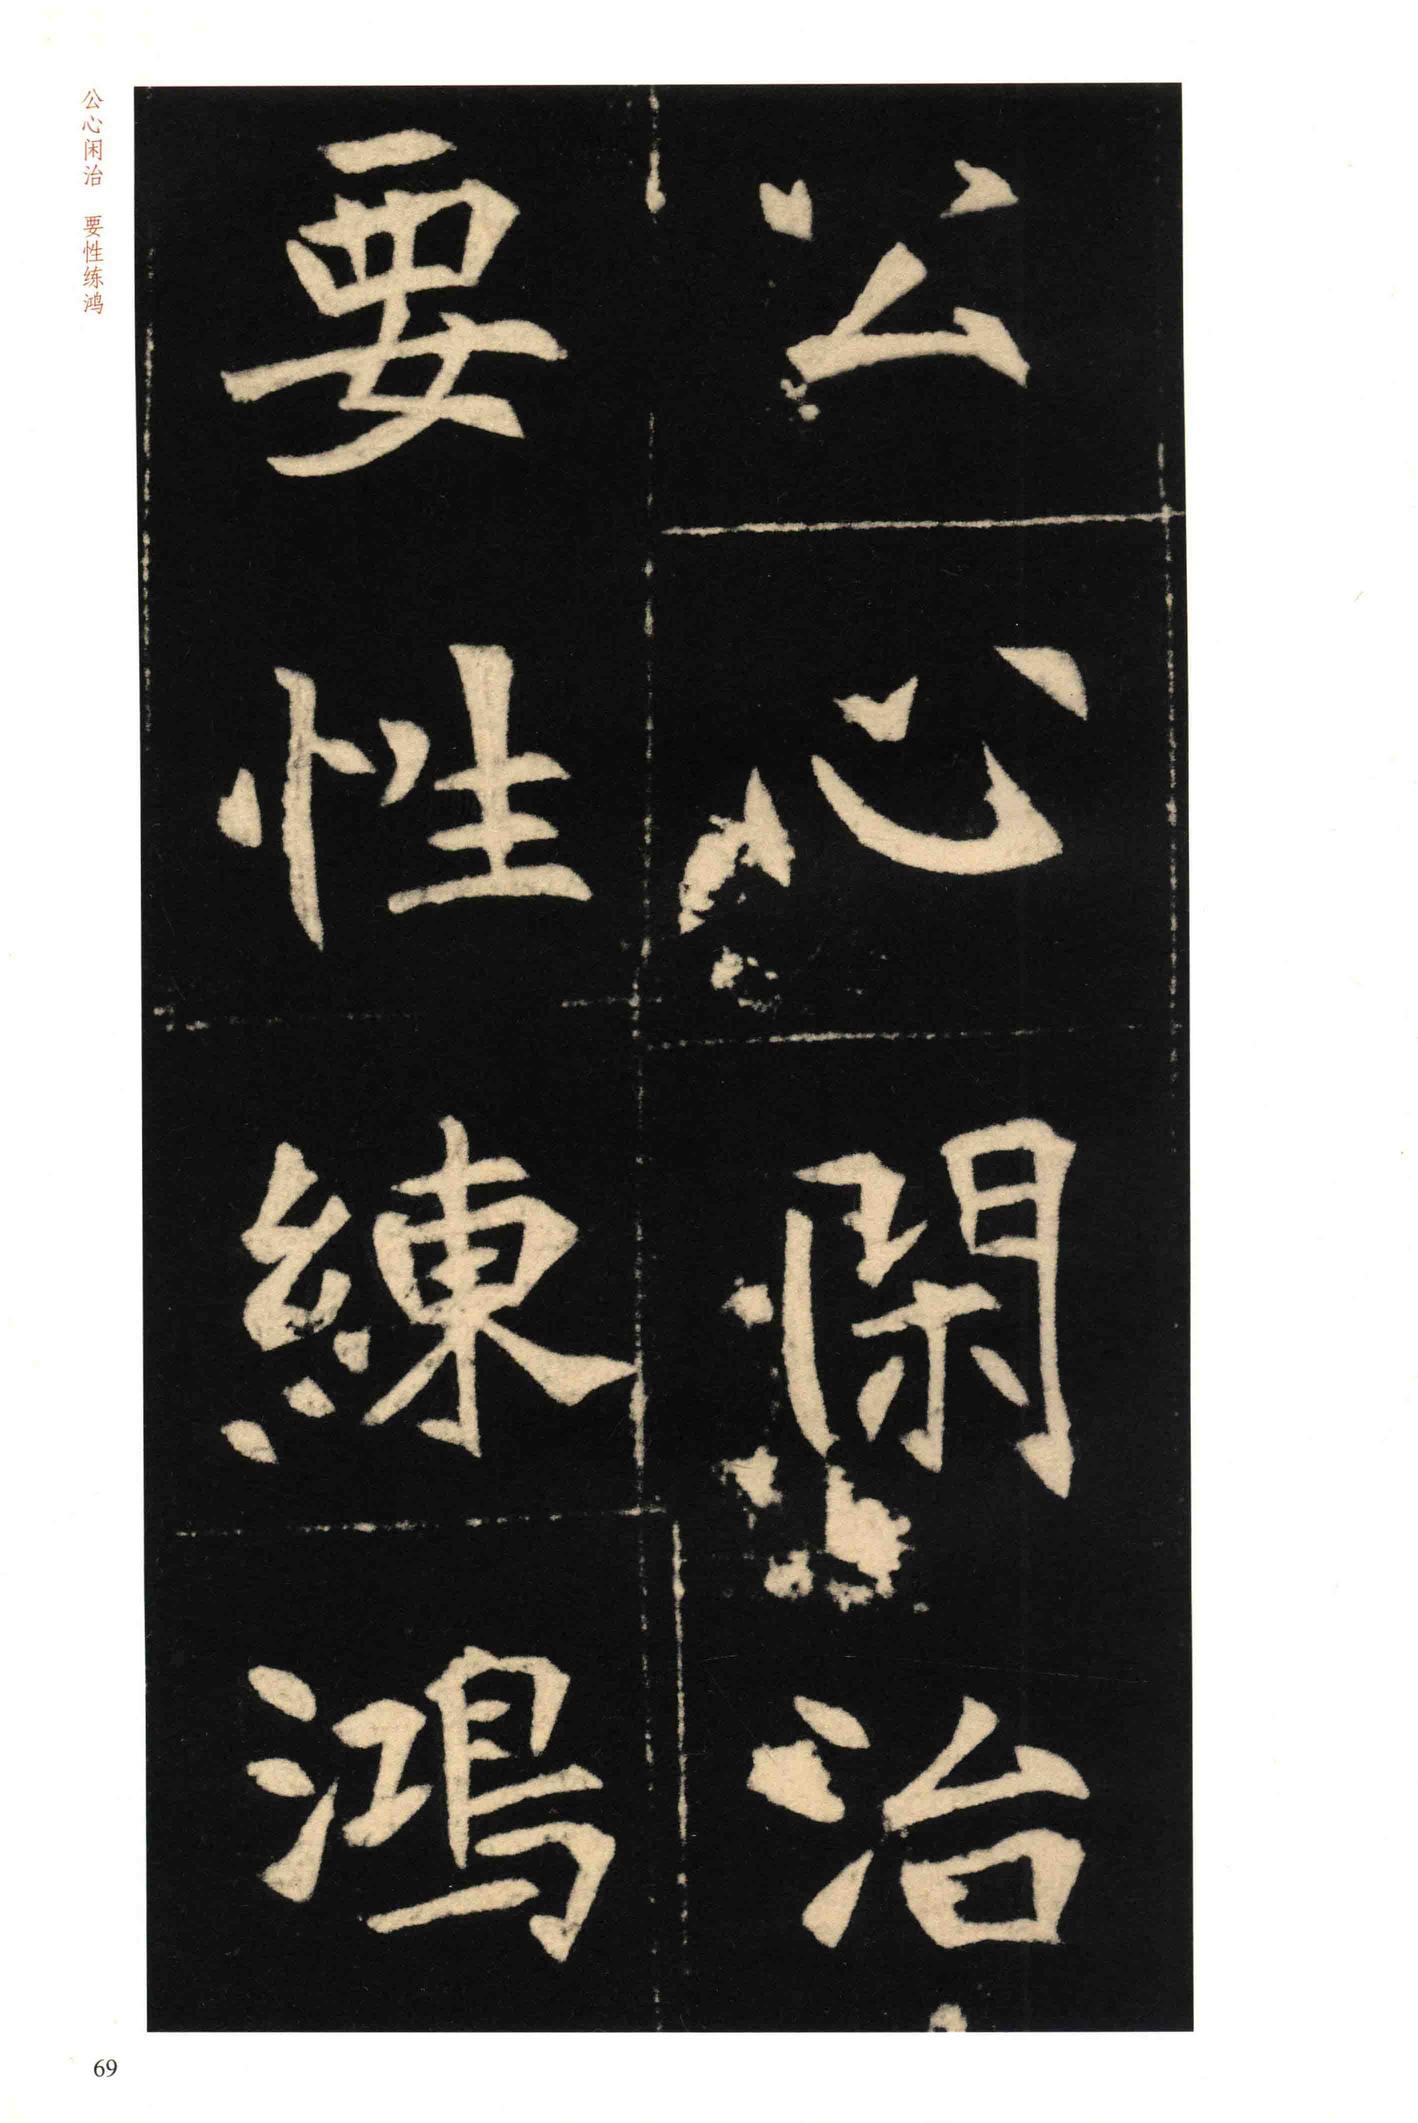 公心閑治
要性練鴻
公心闲治 要性练鸿
69